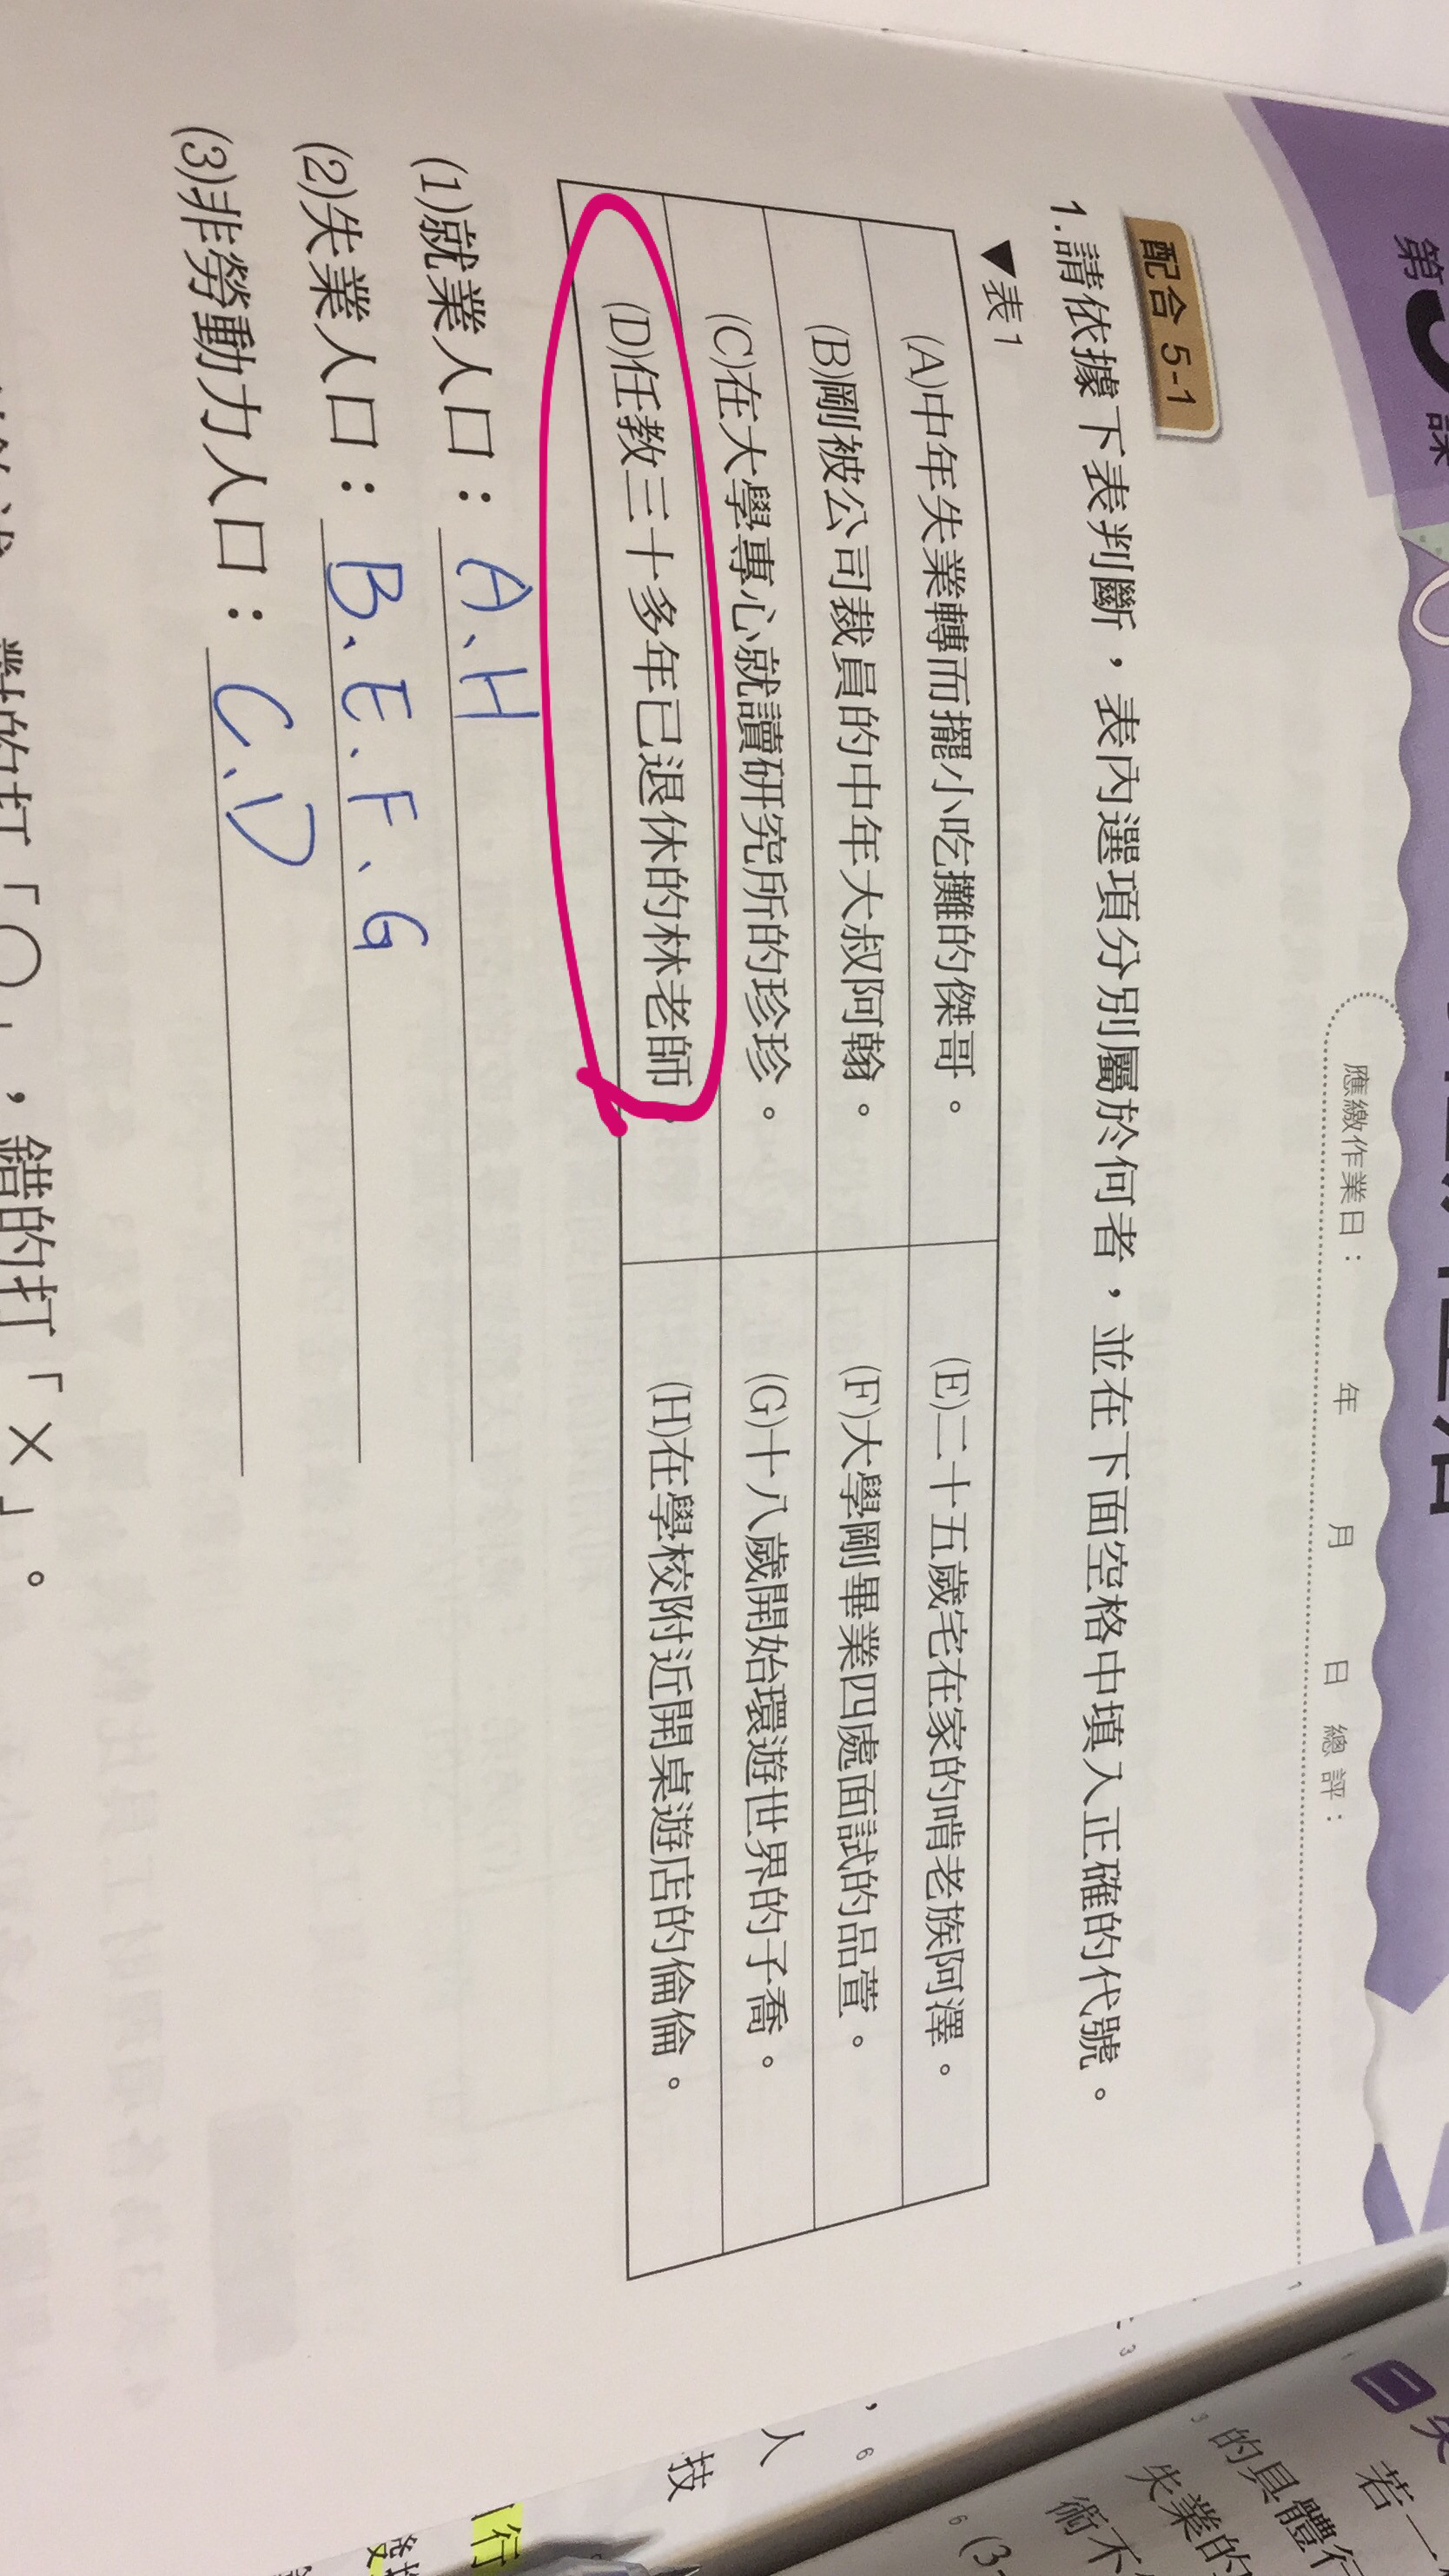 第
課
應繳作業日：　年　月　日 總評：
配合 5-1
1.請依據下表判斷，表內選項分別屬於何者，並在下面空格中填入正確的代號。
▼表1
(A)中年失業轉而擺小吃攤的傑哥。
(E)二十五歲宅在家的啃老族阿澤。
(B)剛被公司裁員的中年大叔阿翰。
(F)大學剛畢業四處面試的品萱。
(C)在大學專心就讀研究所的珍珍。
(G)十八歲開始環遊世界的子喬。
(D)任教三十多年已退休的林老師。
(H)在學校附近開桌遊店的倫倫。
(1)就業人口：A、H
(2)失業人口：B、E、F、G
(3)非勞動力人口：C、D
對的打「○」，錯的打「×」。
二
若一
的具體行
失業的
術不
(3-
人
技
行